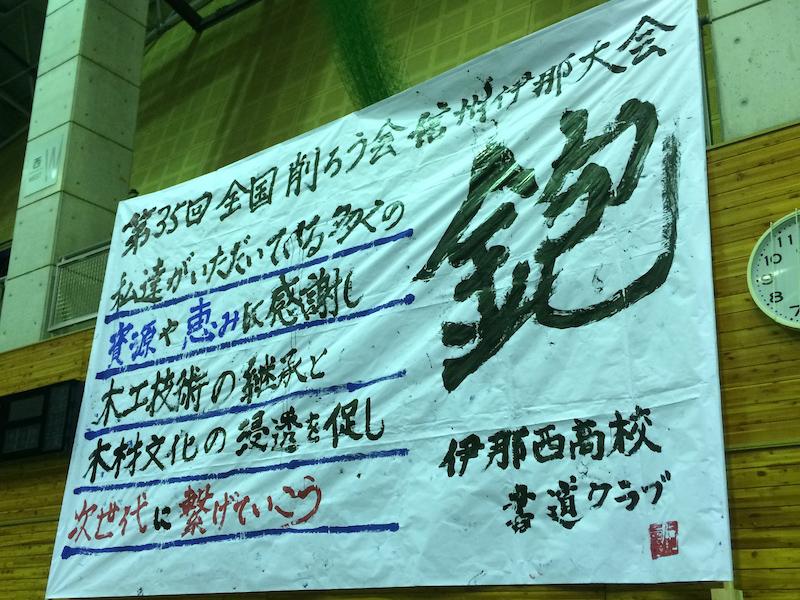 第35回 全国削ろう会 信州伊那大会
鉋
私達がいただいている多くの
資源や恵みに感謝し
木工技術の継承と
木材文化の浸透を促し
次世代に繋げていこう
伊那西高校
書道クラブ
西 W
10 11 12
9
8
7 6